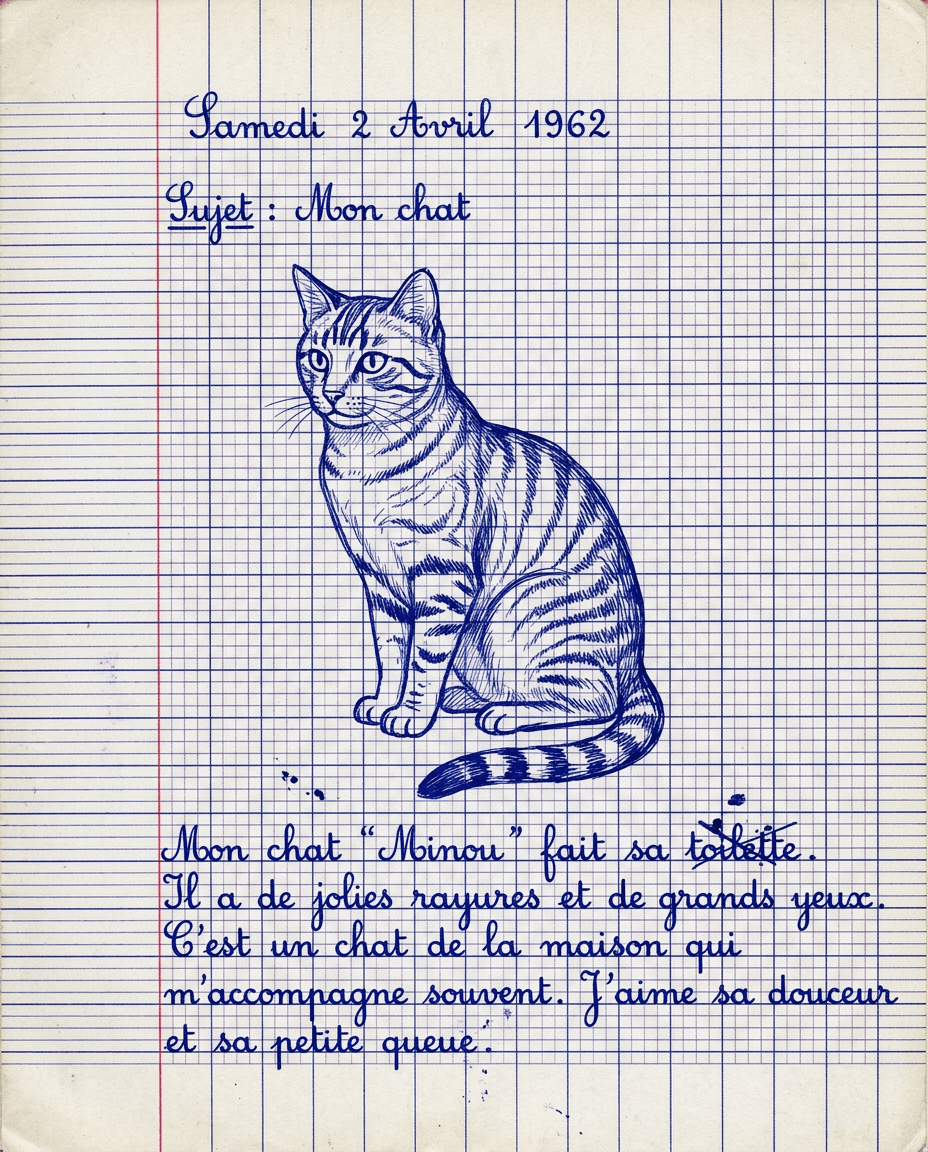 Samedi 2 Avril 1962
Sujet : Mon chat
Mon chat “Minou” fait sa toilette.
Il a de jolies rayures et de grands yeux.
C'est un chat de la maison qui
m'accompagne souvent. J'aime sa douceur
et sa petite queue.